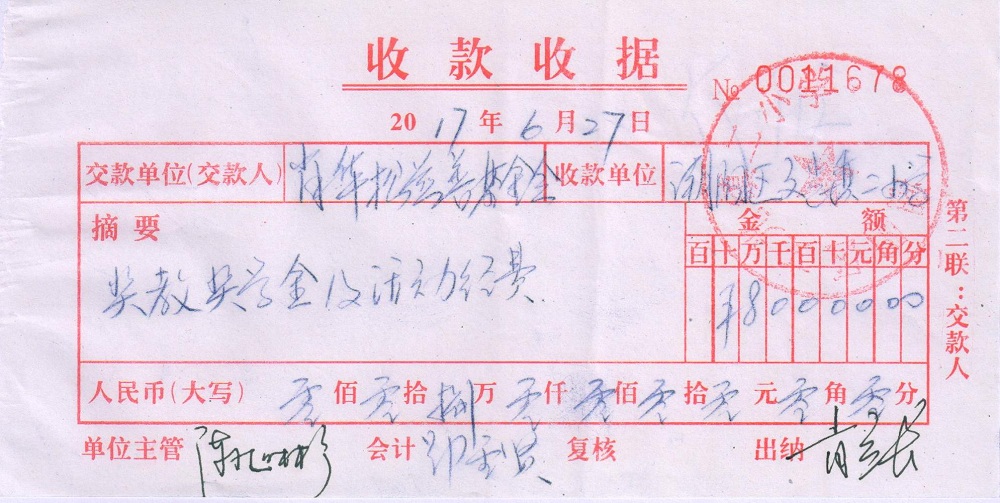 收款收据
№ 0011678
2017年6月27日
交款单位(交款人) 肖华松慈善基金会 收款单位 区文 镇二小
摘要 金额
百十万千百十元角分
奖教奖学金及活动经费 ¥80000000
人民币(大写) 零佰零拾捌万零仟零佰零拾零元零角零分
单位主管 陈 彬 会计 复核 出纳 肖
第二联:交款人